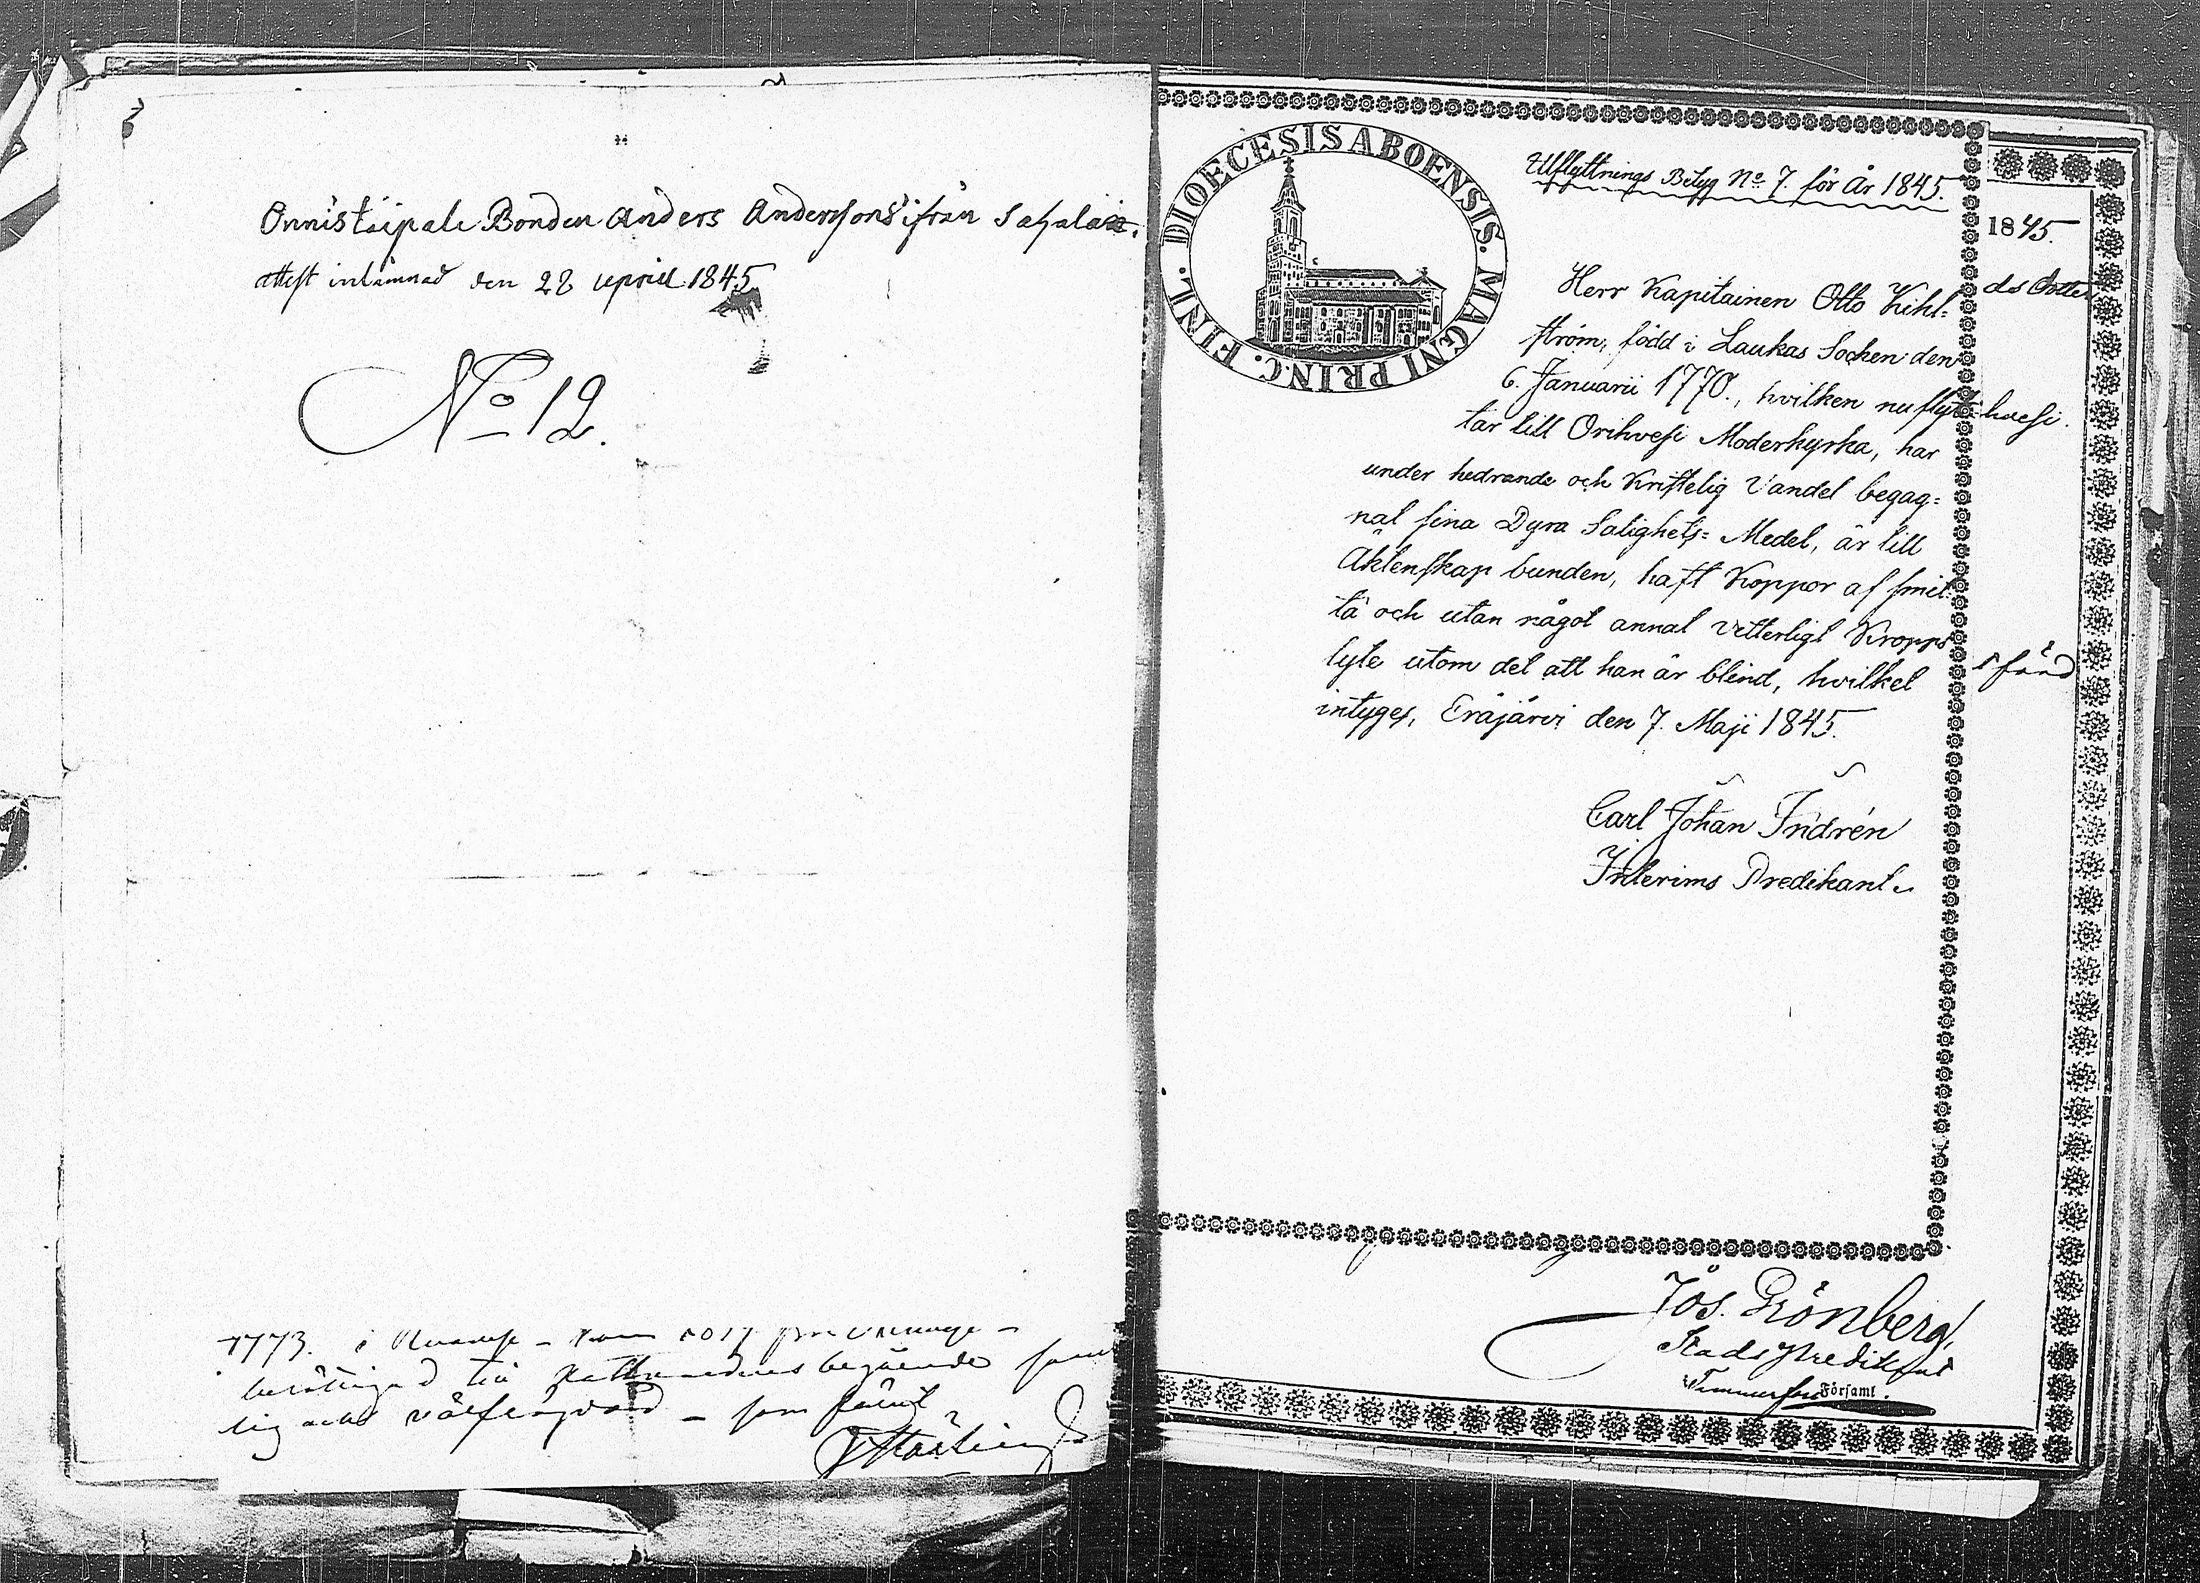 Onnistaipale Bonden Anders Anderssons ifrån Sahala
attest inlämnad den 28 April 1845
No 12.
1773. i
berättigad till begående
som
DIOECESIS ABOENSIS. MAGNI PRINC. FINL.
Utflyttnings Betyg No 7. för År 1845.
1845.
Herr Kapitainen Otto Kihl=
ström, född i Laukas Socken den
6. Januarii 1770., hvilken nu flyt=
tar till Orihvesi Moderkyrka, har
under hedrande och Kristelig Vandel begag=
nat sina Dyra Salighets= Medel, är till
Äktenskap bunden, haft Koppor af smit=
ta och utan något annat vetterligt Kropps
lyte utom det att han är blind, hvilket
intyges, Eräjärvi den 7. Maji 1845.
Carl Johan Indrén
Interims Predikant.
hvesi.
Jos. Grönberg,
Stadspredikant
Församl.